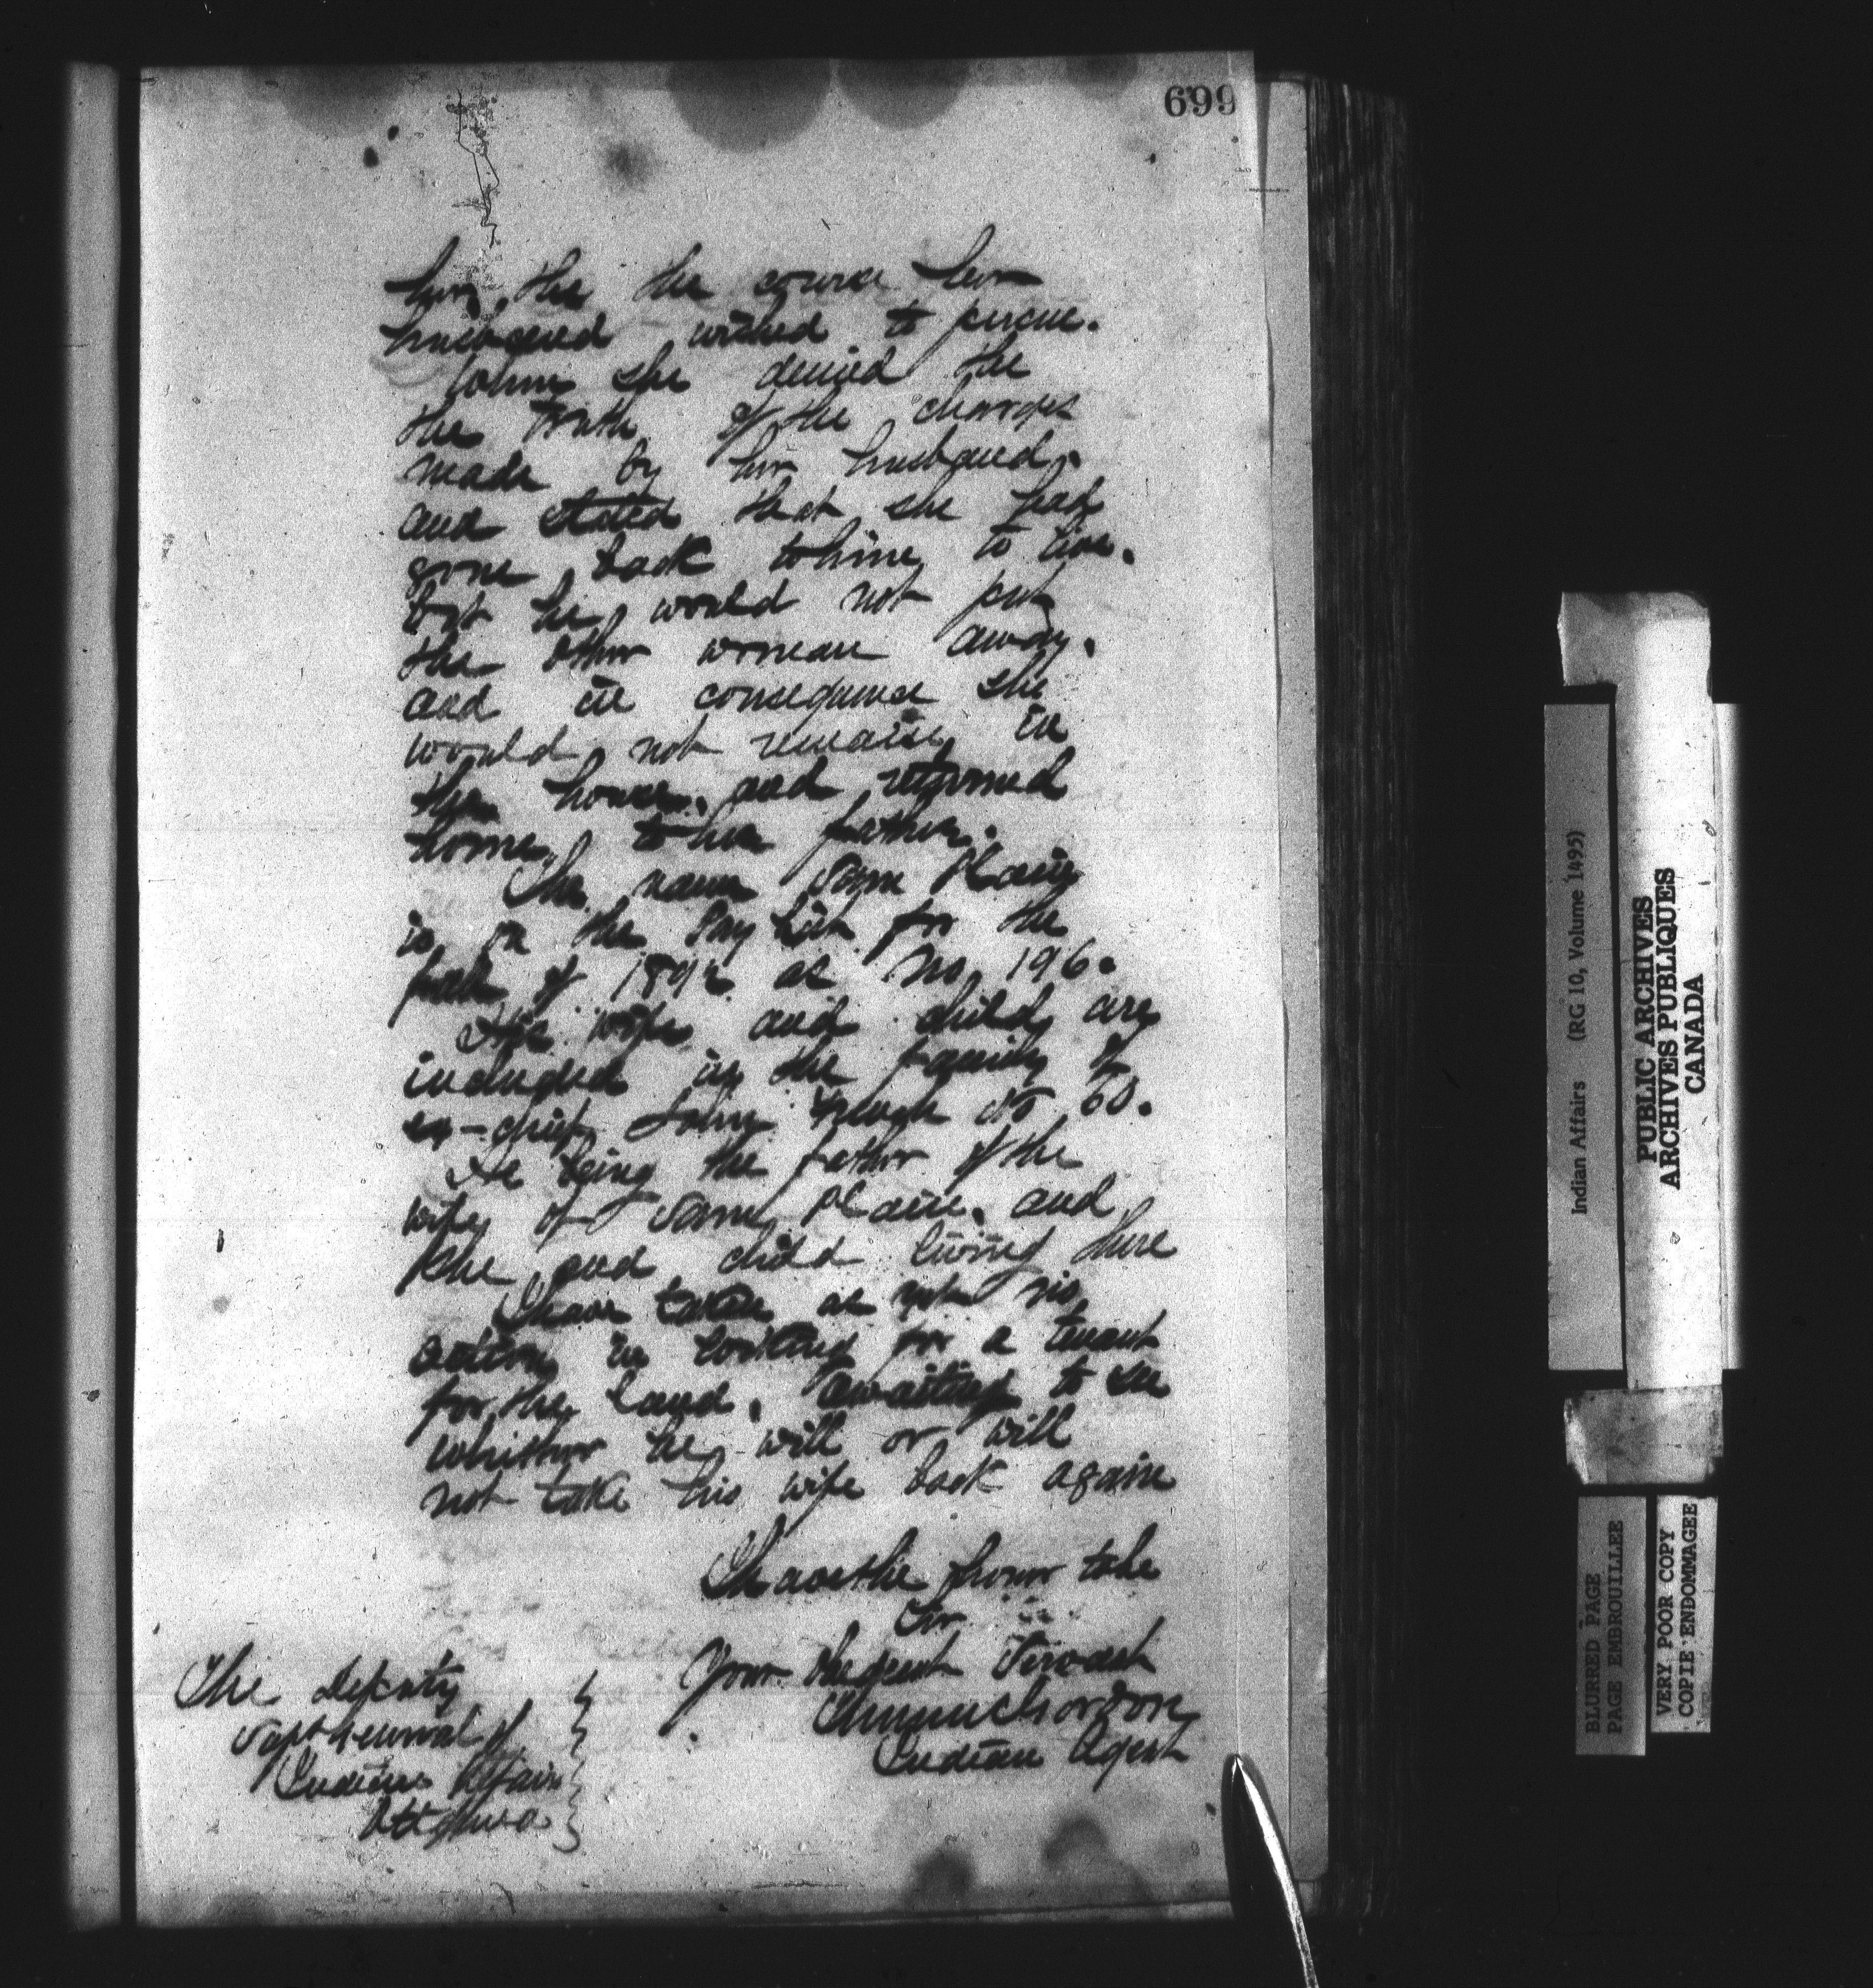 699
her, the the course her
husband wished to persue.
when she denied the
the truth of the charges
made by her husband,
and stated that she had
gone back to him to live.
but he would not put
the other woman away.
and in consequence she
would not remain in
the house, and returned
home to her father.
The name Sam Plain
is on the Pay List for the
fall of 1892 as No 196.
His wife and child are
included in the family of
ex-chief John No 60.
He being the father of the
wife of Sam Plain, and
she and child living there
I have taken as yet no
action in looking for a tenant
for the land, awaiting to see
whither he will or will
not take his wife back again
I have the honor to be
Sir
Your obedient Servant
Indian Agent
The Deputy
Supt General of
Indian Affairs
Ottawa
Indian Affairs (RG 10, Volume 1495)
PUBLIC ARCHIVES
ARCHIVES PUBLIQUES
CANADA
BLURRED PAGE
PAGE EMBROUILLEE
VERY POOR COPY
COPIE ENDOMMAGEE